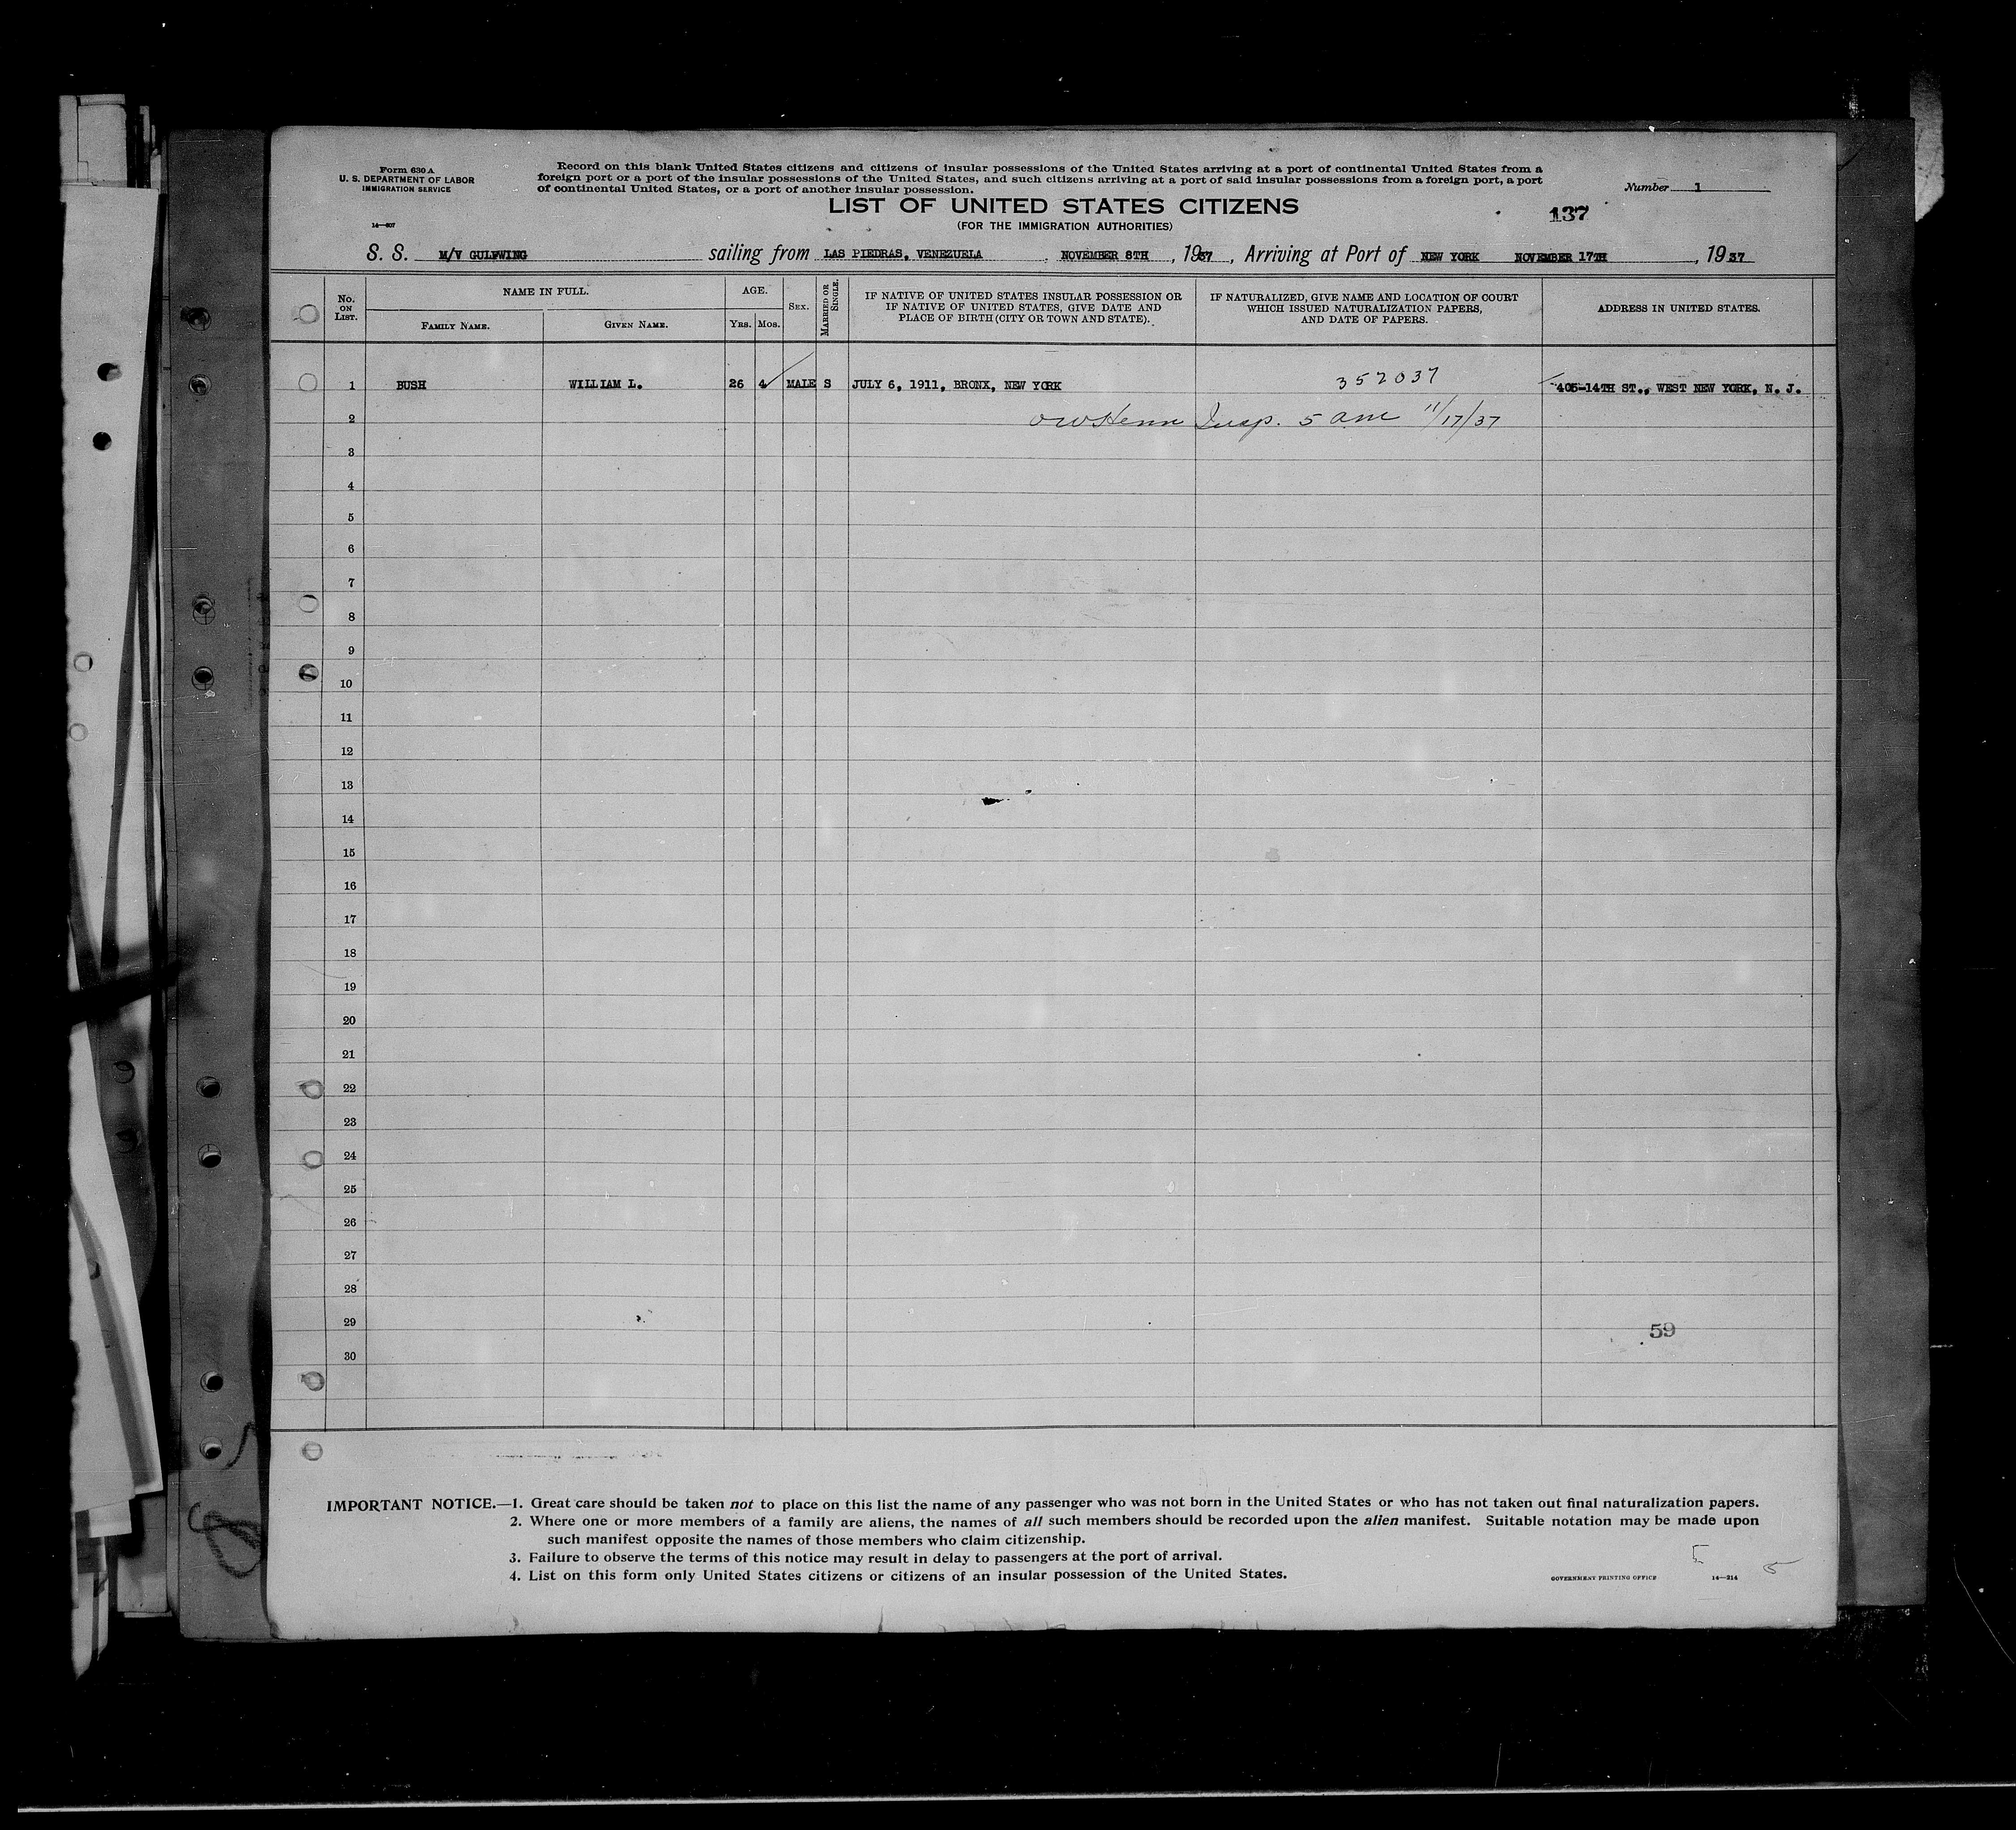 Form 630 A
U. S. DEPARTMENT OF LABOR
IMMIGRATION SERVICE
14—607
Record on this blank United States citizens and citizens of insular possessions of the United States arriving at a port of continental United States from a
foreign port or a port of the insular possessions of the United States, and such citizens arriving at a port of said insular possessions from a foreign port, a port
of continental United States, or a port of another insular possession.
Number 1
LIST OF UNITED STATES CITIZENS
137
(FOR THE IMMIGRATION AUTHORITIES)
S. S. M/V GULFWING sailing from LAS PIEDRAS, VENEZUELA, NOVEMBER 8TH, 1937, Arriving at Port of NEW YORK NOVEMBER 17TH, 1937
No. ON LIST.
NAME IN FULL.
FAMILY NAME.
GIVEN NAME.
AGE.
YRS. MOS.
SEX.
MARRIED OR SINGLE.
IF NATIVE OF UNITED STATES INSULAR POSSESSION OR
IF NATIVE OF UNITED STATES, GIVE DATE AND
PLACE OF BIRTH (CITY OR TOWN AND STATE).
IF NATURALIZED, GIVE NAME AND LOCATION OF COURT
WHICH ISSUED NATURALIZATION PAPERS,
AND DATE OF PAPERS.
ADDRESS IN UNITED STATES.
1 BUSH WILLIAM L. 26 4 MALE S JULY 6, 1911, BRONX, NEW YORK 352037 405-14TH ST., WEST NEW YORK, N. J.
2 Insp. 5 am 11/17/37
3
4
5
6
7
8
9
10
11
12
13
14
15
16
17
18
19
20
21
22
23
24
25
26
27
28
29 59
30
IMPORTANT NOTICE.—1. Great care should be taken not to place on this list the name of any passenger who was not born in the United States or who has not taken out final naturalization papers.
2. Where one or more members of a family are aliens, the names of all such members should be recorded upon the alien manifest. Suitable notation may be made upon
such manifest opposite the names of those members who claim citizenship.
3. Failure to observe the terms of this notice may result in delay to passengers at the port of arrival.
4. List on this form only United States citizens or citizens of an insular possession of the United States.
GOVERNMENT PRINTING OFFICE 14—214
5